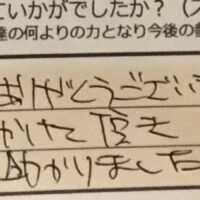 ていかがでしたか？（ス
達の何よりの力となり今後の参
ありがとうござい
かけて頂き
助かりました